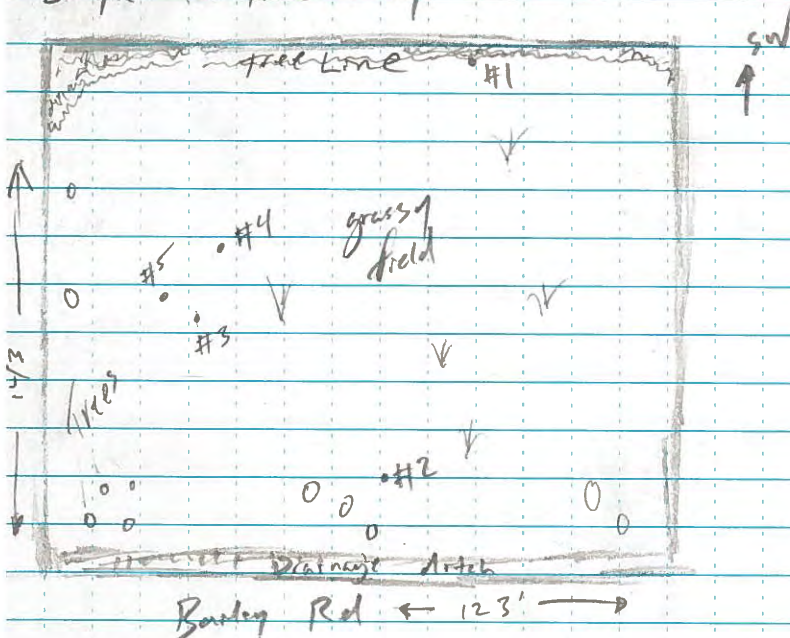 SW
tree Line
#1
grassy
field
#4
#5
#3
Trees
#2
Drainage ditch
Rd ← 123' →